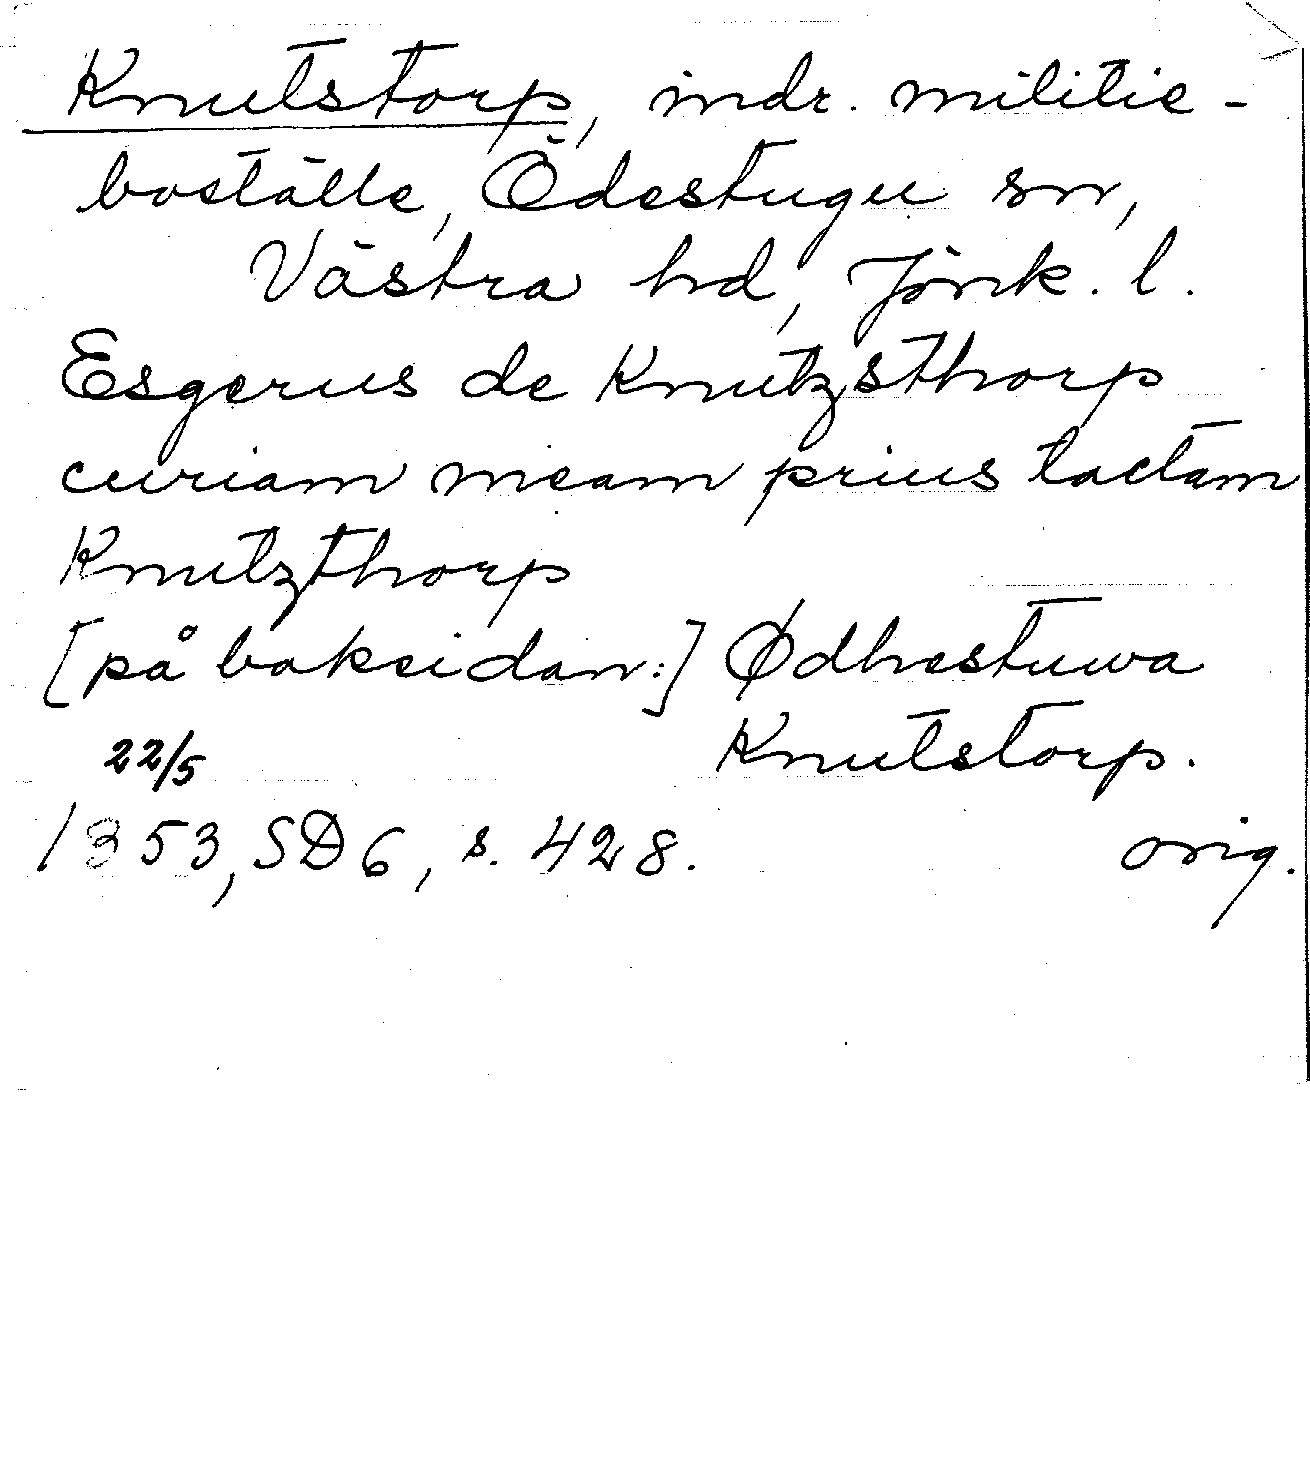 Knutstorp, indr. militie-
boställe, Ödestugu sn,
Västra hd, Jönk. l.
Esgerus de Knutzsthorp
curiam meam prius tactam
Knutzthorp
[på baksidan:] Ødhestuwa
Knutstorp.
22/5
1353, SD 6, s. 428. orig.